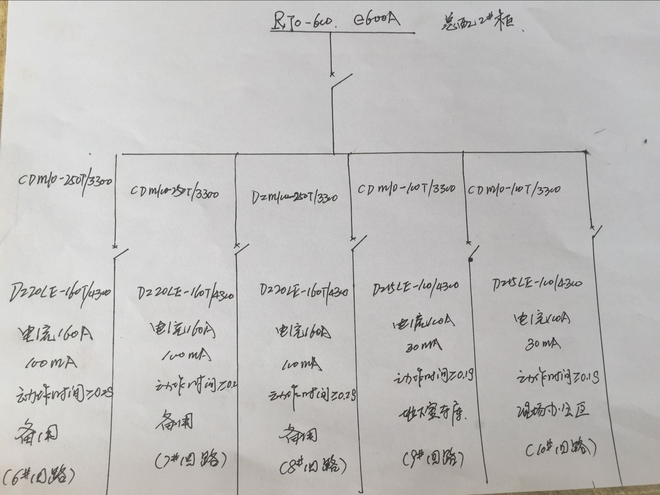 RTo-600. @600A
总配2#柜
CDM10-250T/3300
CDM10-250T/3300
DZM10-250T/3300
CDM10-100T/3300
CDM10-100T/3300
DZ20LE-160T/4300
DZ20LE-160T/4300
DZ20LE-160T/4300
DZ15LE-100/4300
DZ15LE-100/4300
电流160A
电流160A
电流160A
电流100A
电流100A
100mA
100mA
100mA
30mA
30mA
动作时间≥0.2S
动作时间≥0.2
动作时间≥0.2S
动作时间≥0.1S
动作时间≥0.1S
备用
备用
备用
地下室车库
现场办公区
(6#回路)
(7#回路)
(8#回路)
(9#回路)
(10#回路)